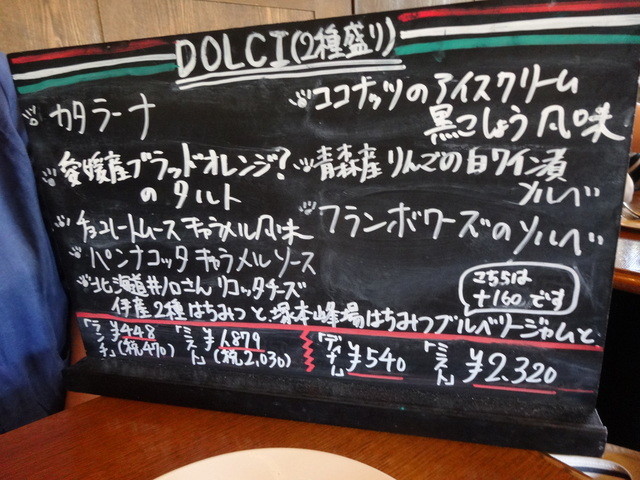 DOLCI(2種盛り)
カタラーナ
愛媛産ブラッドオレンジ?
のタルト
チョコレートムース キャラメル風味
パンナコッタ キャラメルソース
北海道 さん リコッタチーズ
伊産2種はちみつと、塚本峰場はちみつブルベリージャムと
ココナッツのアイスクリーム
黒こしょう風味
青森産りんごの白ワイン漬
ソルベ
フランボワーズのソルベ
こちらは
+160です
「ランチ」
¥448
(税470)
「ミスト」
¥1,879
(税2,030)
¥540
「ミスト」
¥2,320